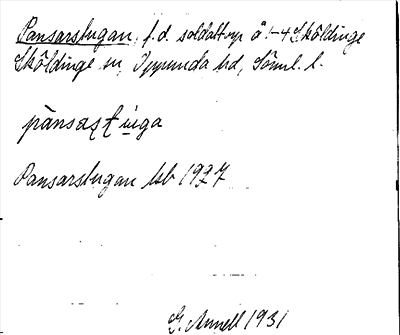 Pansarstugan, f.d. soldattorp å 1-4 Sköldinge
Sköldinge sn, Oppunda hd, Söml. l.
pànsaʂtúga
Pansarstugan kb 1927
G. Annell 1931